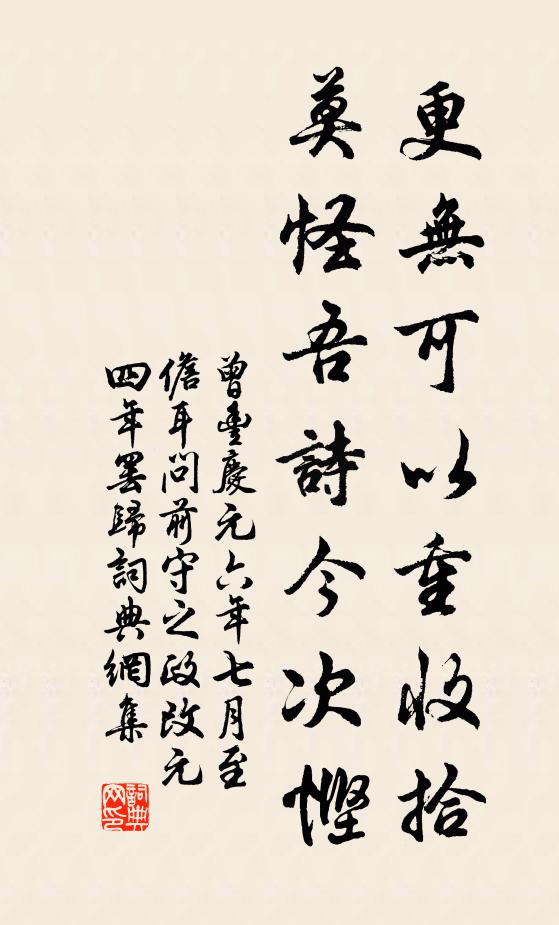 更無可以重收拾
莫怪吾詩今次慳
曾豐慶元六年七月至
儋耳問前守之政改元
四年罷歸詞典網集
詞典網印